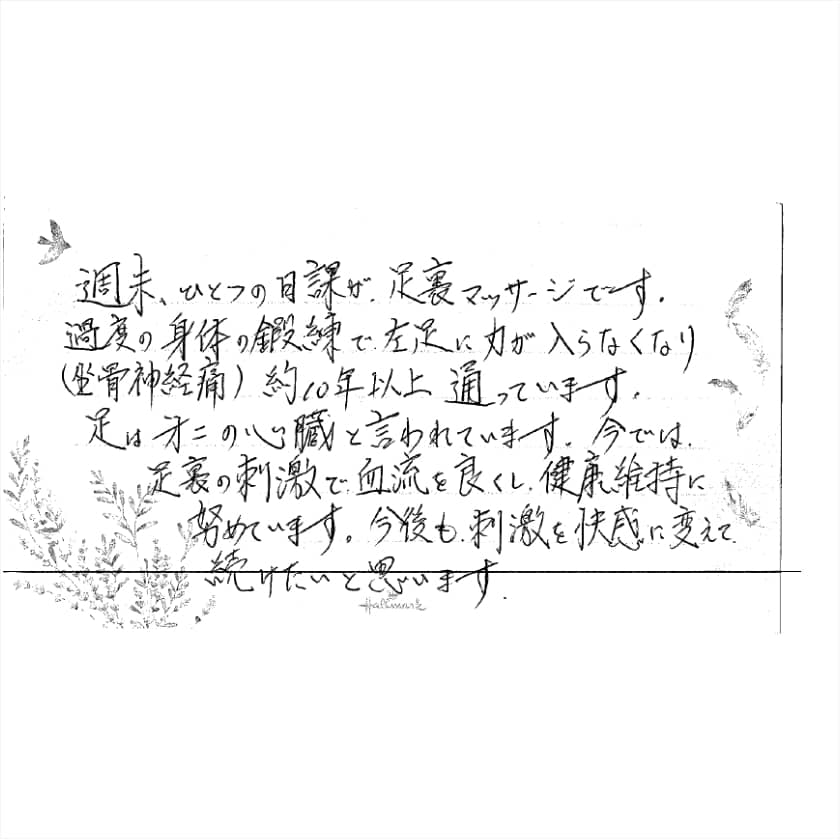 週末、ひとつの日課が、足裏マッサージです。
過度の身体の鍛練で、左足に力が入らなくなり
(坐骨神経痛) 約10年以上 通っています。
足は才二の心臓と言われています。今では、
足裏の刺激で、血流を良くし、健康維持に
努めています。今後も、刺激を快感に変えて、
続けたいと思います。
Hallmark